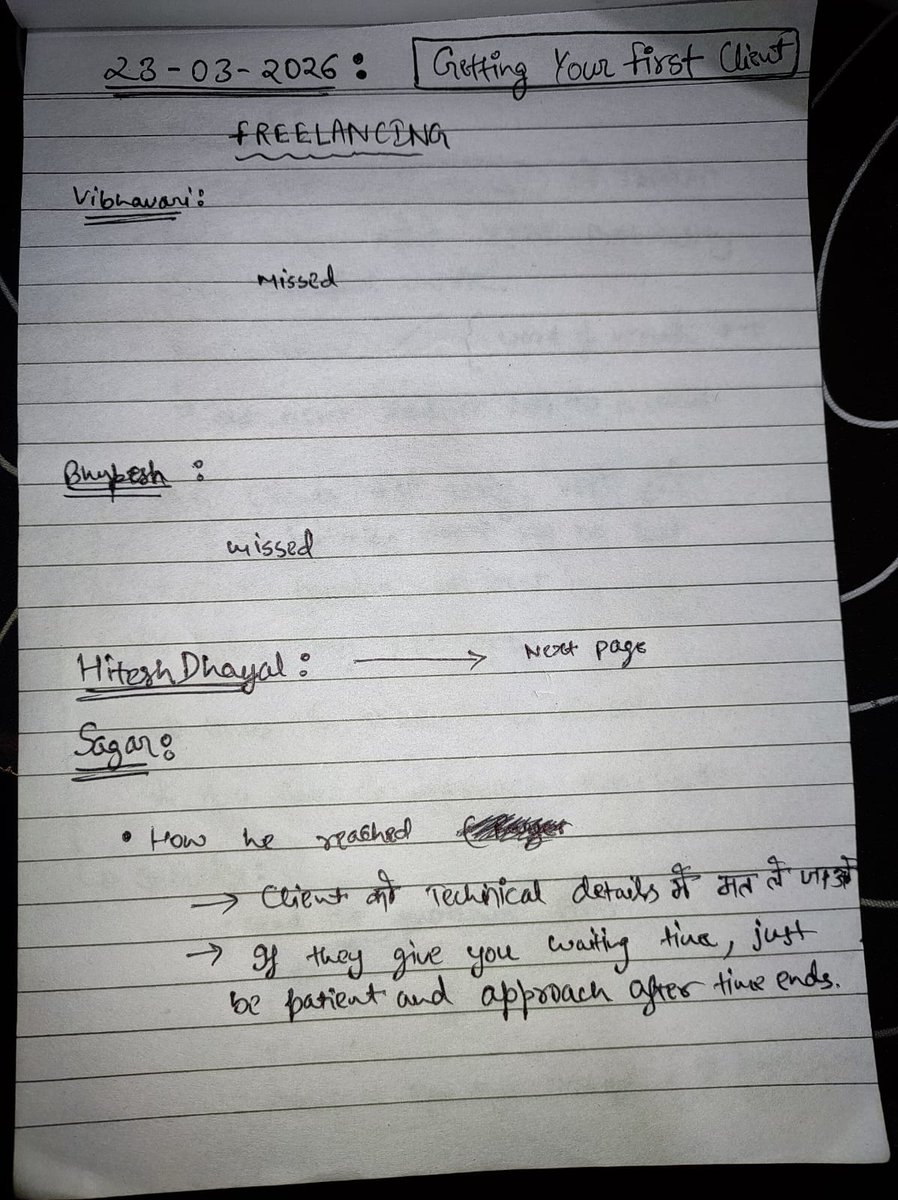 23-03-2026: Getting Your first Client
FREELANCING
Vibhavari:
Missed
Bhupesh:
missed
Hitesh Dhayal: → Next page
Sagar:
• How he reached
→ Client को Technical details में मत ले जाओ
→ If they give you waiting time, just
be patient and approach after time ends.